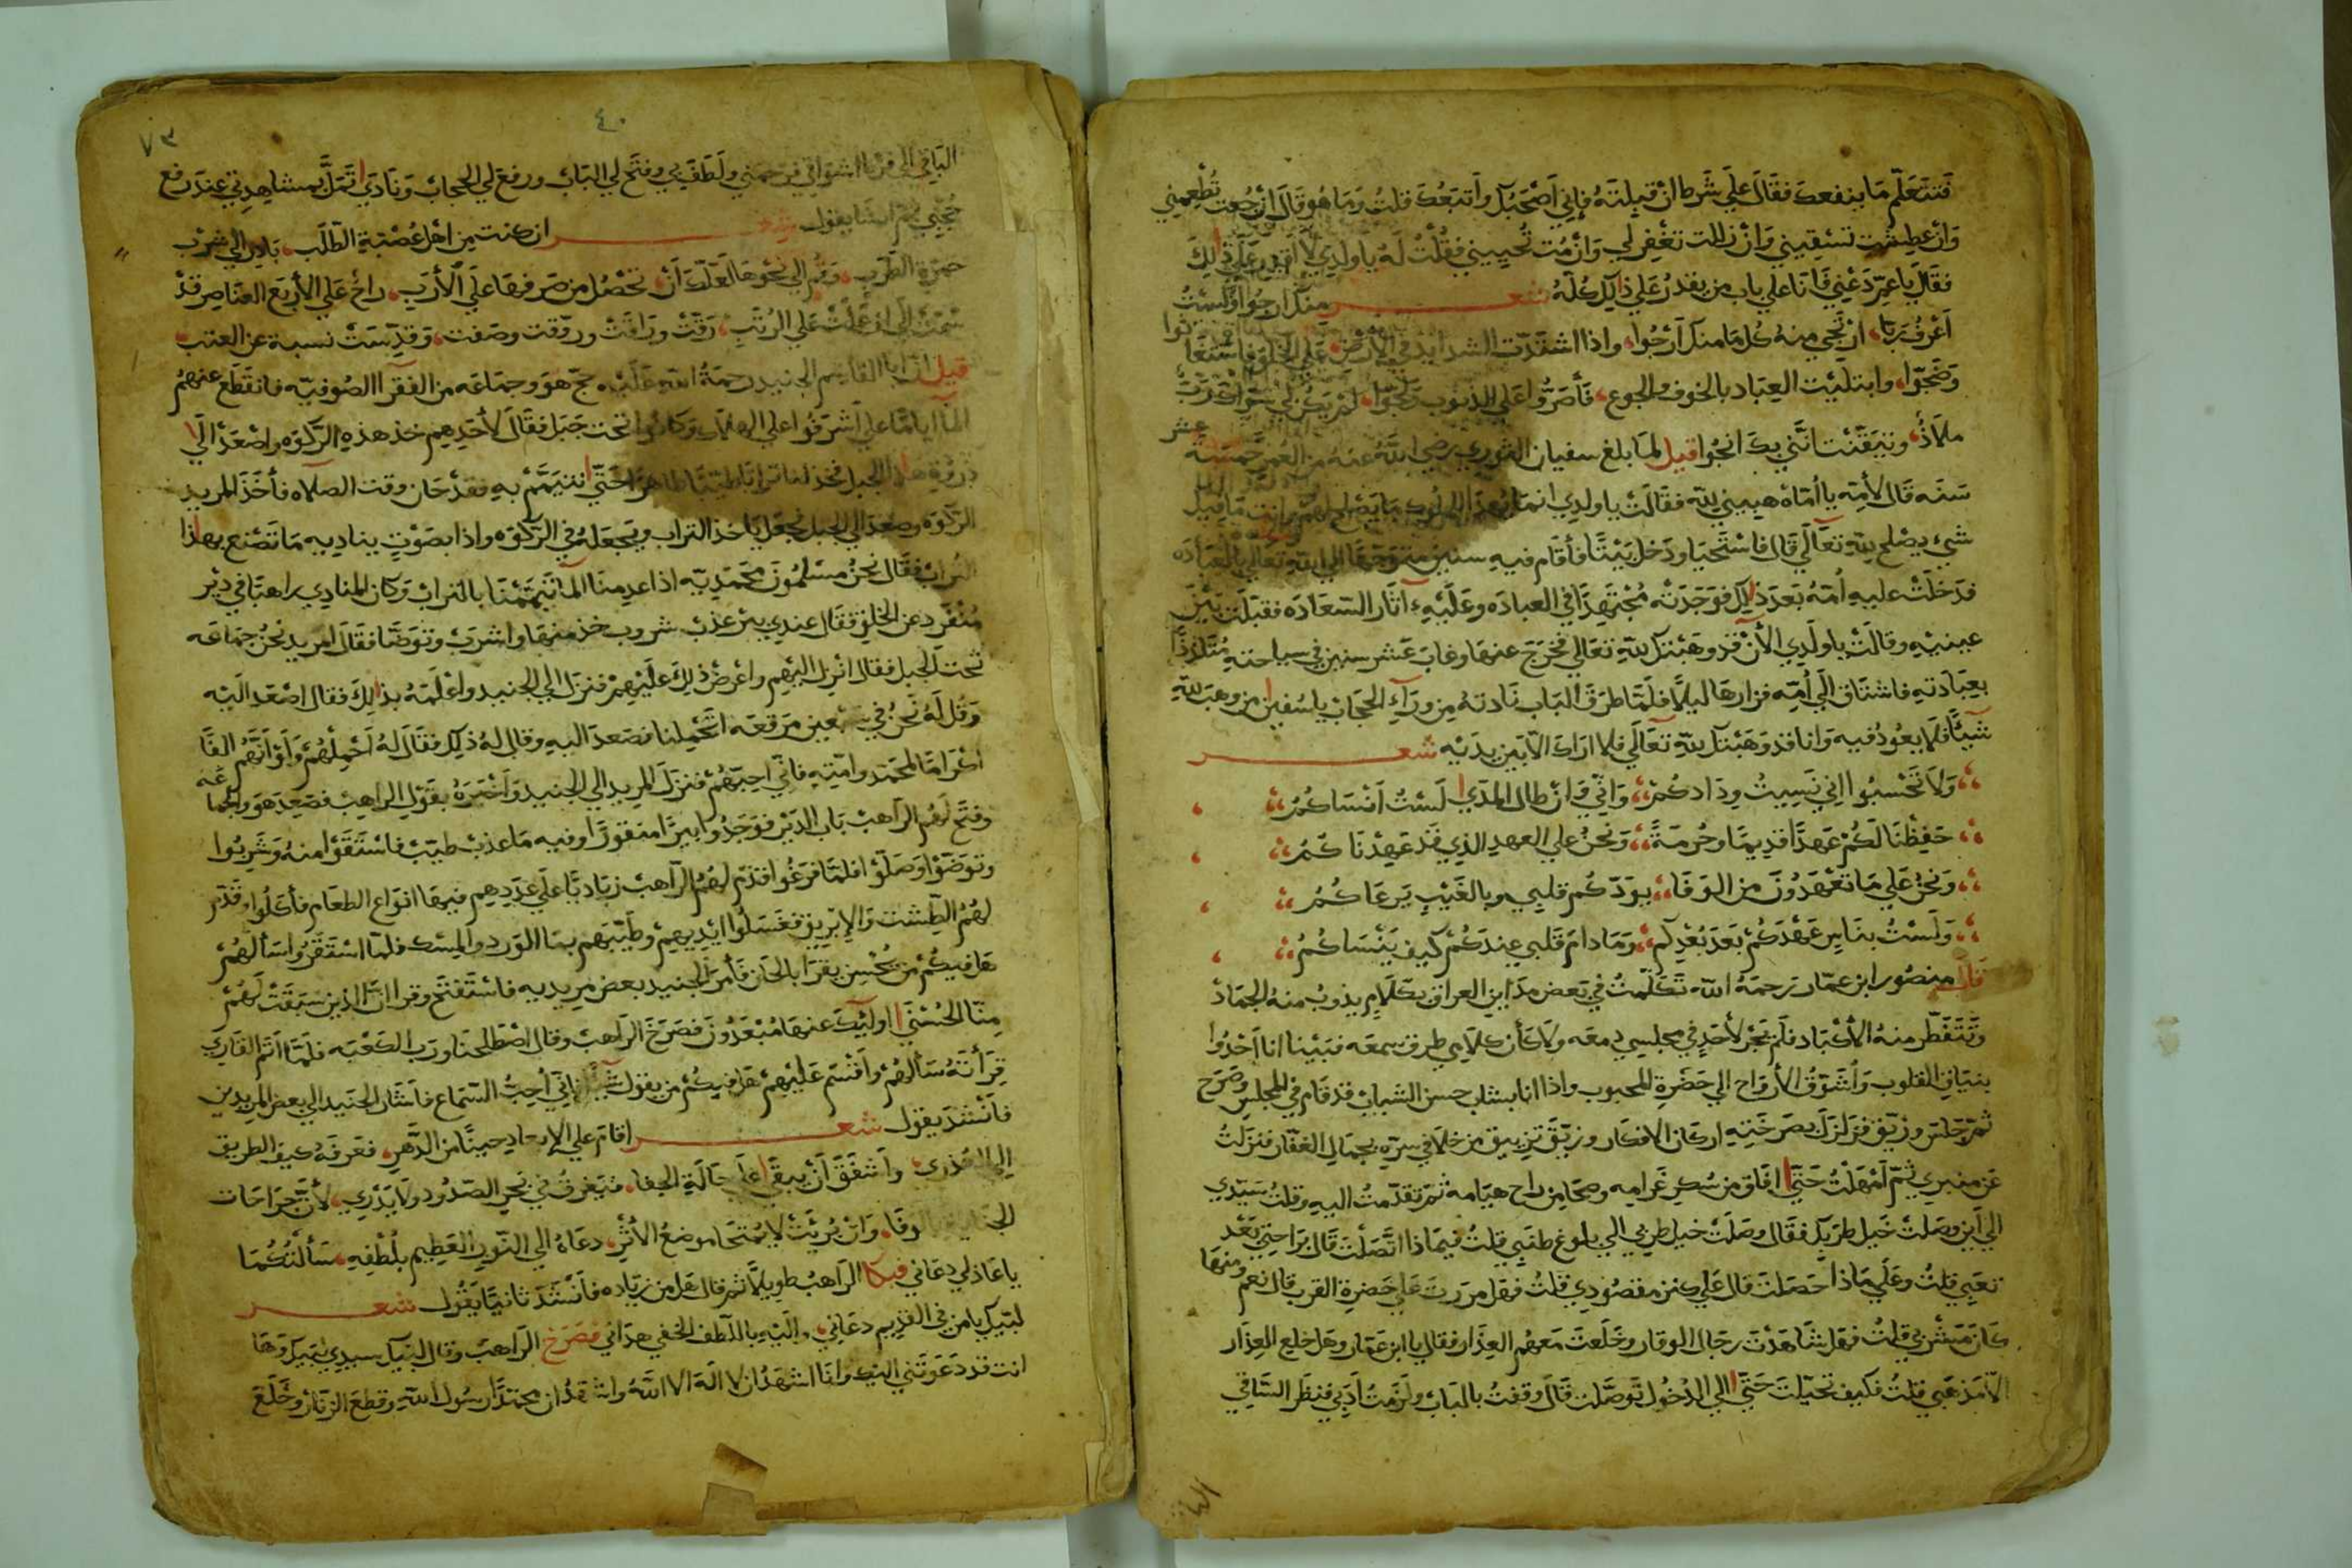 فَتتَعَلّم مَا ينفعك فقَالَ علَى شَرط ان قبِلتَهُ فإني اَصْحَبُك وأتبَعُكَ قلتُ وَمَا هُو قَالَ انْ جُعت تُطْعِمني
وَانْ عطِشت تسْقِيني وَانْ زللت تغْفِر لي وَانْ مُت تُحييني فقُلْتُ لَهُ يا ولدِي لا أقدِر عَلَى ذلِكَ
فقَالَ يا عمّ دَعْني فَانَا على باب من يقدرُ عَلى ذلِك كلّه شعر منك ارجُوا ولَسْتُ
اَعْرفُ رَبا، ان نجي منهُ كُل مَا منك اَرْجُوا، واذا اشتدّت الشدايد في الأرض، عَلى الخلق فاستغَاثوا
وَضَجّوا، وابتلَيْت العِبَاد بالخوف والجوع، فَأصَرُّوا عَلى الذنوب ولجوا، لَمْ يكن لي سِوَاكَ رَبي
ملاَذُ، وتيَقّنْت انّني بكَ انجُوا قيل لمَا بلغ سفيان الثوري رضِي اللهُ عنهُ من العُمر خَمسَة عشر
سَنَه قَالَ لأمّه يا أمّاه هبيني للّه فقَالَتْ يا ولدِي انمَا يُهدَا للملُوك مَا يَصْلح لهُمْ وانت مَا فيك
شيء يصْلح للّهِ تعَالَى قَالَ فاسْتَحْيَا ودَخل بَيْتًا فأقَام فيهِ سنين متوَجّهًا الى اللهِ تعَالى بالعبَادَه
فدَخلَتْ عليهِ أمّهُ بَعَدَ ذلِك فوَجَدتْه مُجْتهِدًا في العبادَه وعَلَيْهِ آثَار السّعَادَه فقبلَت بَيْنَ
عينيْهِ وقالَتْ يا ولَدِي الأنْ قد وهَبْتك للّهِ تعَالي فخرَجَ عنهَا وغابَ عَشر سنين في سياحتهِ مُتَلذذًا
بعِبَادَتهِ فاشتَاق الَى أمّه فزارهَا ليلاً فلَمّا طرَقَ البَاب نَادتهُ مِن ورَآءِ الحجَاب يا سُفين من وهبَ للّهِ
شَيْئًا فَلا يعُودُ فيه وَانا قد وَهَبْتك للّهِ تعَالَى فلا ارَاكَ الا بَين يدَيْه شعر
وَلاَ تَحْسبُوا اني نَسِيتُ ودَادكُمْ، وَانّي وَان طال المدَي لَستُ اَنْسَاكُمُ
حَفِظْنَا لَكُمْ عَهدًا قدِيمًا وحُرمَةً، وَنحنُ علي العهدِ الذِي قَد عَهِدْنَاكمُ
وَنحنُ عَلي مَا تعْهَدُونَ من الوَفَا، بودّكُم قلبِي وبالغَيْبِ يَرعَاكُمُ
وَلَستُ بنَاسِ عَهْدَكُمْ بَعَدَ بُعْدِكم، وَمَا دامَ قَلبي عِندَكُمْ كيف يَنْسَاكُمُ
قَالَ منصُور ابن عمّار رَحمَهُ اللّه تَكَلّمتُ في بَعض مدَاين العرَاق بكَلاَمٍ يذوبُ منهُ الجمَادُ
وَتَتَفَطّر منهُ الأكْبَاد فلَم يَجْرِ لأحَدٍ في مجلسِي دمعَه ولاَ كأن كلاَمِي طرق سمعَه فبَيْنا انا اَحْدُوا
بنيَاق القلوب وَأشَوّقُ الأرْوَاح الي حَضَرةِ المحبوب واذا انا بشاب حسن الشبَاب قد قَام في المجلِس وصَرَخ
ثمّ جَلسَ وزَعَق فزَلزَلَ بصَرخَتهِ اركَان الافكار وزَبّقَ تزبيق من خلاَ في سرّهِ بجمَال الغفّار فنزلتُ
عَن منبَري ثمّ اَمْهَلْتُ حَتّى افَاق من سُكر غَرامهِ وصحَا مِن راح هيَامه ثمّ تقدّمتُ اليهِ وقلتُ سَيّدِي
الي اَين وصَلتْ خَيل طربك فقَال وصَلَتْ خيل طربي الي بلوغ طلبي قلتُ فيمَا ذا اتّصَلْتَ قَالَ برَاحتي بَعْد
تعَبي قلتُ وعَلي مَا ذا حَصَلتَ قالَ عَلي كنز مقصُودِي قلتُ فهَل مرَرتَ عَلي حَضرةِ القرب قالَ نعم ومنهَا
كَانَ مَشرَبي قلتُ فهَل شاهَدْتَ رجَال الوقار وخَلَعتَ مَعهُم العِذَار فقال يا ابن عَمّار وهَل خلع العِذَار
الاّ مَذهَبي قلتُ فكيف تحيّلت حَتّى الي الدُخُول توصّلت قَالَ وقفتُ بالبَاب ولَزمتُ اَدَبي فنظَر السَّاقي
البا
٤٠
٧٣
البَاقي الَى فرَأ اشوَاقي فرَحَمني ولَطَفَ بي وفتَح لي البَاب ورفعَ لي الحجاب وَنادَي تَمَلّ بمشاهدتي عندَ رفع
حُجْبي ثمّ انشَا يقول شعر ان كنت مِن اهل عُصْبَةِ الطّلَب، بَادر الي شرْب
خمرَةِ الطرَب، وَقُم الي نحوهَا لعَلّكَ اَنْ، تحْصُل من صَرفهَا علَى الأرَبِ، راحٌ عَلي الأربَع العنَاصِر قدْ
سَمَتْ الَى اَنْ عَلَتْ عَلي الرُتَبِ، رَقّتْ وَرَاقَتْ وروّقت وصَفت، وَقدّسَتْ نسبة عن العتب
قيل ان ابا القاسِم الجنيد رحمَةُ اللهِ عَلَيْه حَجّ هوَ وجمَاعَه من الفقَرا الصُوفيّه فانقَطَع عنهمُ
المآ ايامًا حتى اَشرَفُوا على الهلاك وكانوا تحت جَبَل فقَالَ لأحدِهِم خذ هذهِ الرّكوَه واصْعَدْ الَى
ذِروَةِ هذا الجبل فخذ لنا ترابًا طيّبًا طاهرًا حَتّى نتيمَّمْ بهِ فقدْ حَان وقت الصلاَه فأخذَ المريد
الركوَه وصَعدَ الي الجبل فجعَل ياخذ التراب ويَجعَلهُ في الرّكوَه واذا بصَوْتٍ يناديهِ مَا تَصْنع بهذا
التراب فقَال نحنُ مسْلمُونَ محَمّديّه اذا عدِمنَا المآ تَيَمّمْنَا بالترابْ وَكان المنادِي راهبًا في دَيْر
مُنْفَرد عن الخلق فقَال عندِي بئر عَذبْ شروب خذ منهَا واشرَبْ وتوَضّا فقَالَ المريد نحنُ جمَاعَه
تحت الجبل فقال انْزل اليْهِم واعْرضْ ذلِكَ علَيْهِمْ فنزلَ الي الجنيد واَعْلَمَهُ بذلِكَ فقال اصْعَد اليْه
وَقُل لَهُ نَحنُ في سبعين مرَقعَه اتَحْملنا فصَعدَ اليهِ وقال لهُ ذلِك فقَالَ لهُ اَحْمِلُهُم وَلَوْ اَنّهُم الفًا
اكْرَامًا لمحَمّد وامّتهِ فانّي احبّهُمْ فنزلَ المريد الي الجنيد واَخْبَرَهُ بقَوْل الراهِب فصَعِدَ هوَ والجمَاعَه
وفتَح لَهم الرَاهِبْ بَاب الدّيْر فوَجَدُوا بيرًا منقورًا وفيه مَا عذبْ طيّبْ فاسْتَقَوْا منهُ وَشَربُوا
وتوَضّؤا وَصَلّوْا فلمّا فرَغُوا قدّم لهمُ الرّاهبْ زبَاديًا علَي عَدَدِهِم فيهَا انوَاع الطعَام فأكلُوا وقَدّم
لهُمُ الطّشت وَالإبريق فغسَلُوا ايْدِيهِمْ وطَيّبَهم بمَا الوَردِ والمِسْك فلمّا اسْتَقَرُّوا سَألهُمْ
هَل فيكُمْ مَن يُحْسِن يقرَا بالحَان فَأمرَ الجنيد بعض مريديه فاسْتَفتَح وقرا انّ الذين سَبَقَتْ لَهُمْ
مِنّا الحُسْنَى اولئِكَ عنهَا مُبْعَدُونَ فصَرَخَ الرّاهبْ وقال اصْطلحنَا ورَب الكَعْبَه فلَمّا اَتَمّ القَارِي
قِرَأتَهُ سَألهُمْ وَاَقْسَم عَليْهِمْ هَل فيكُمْ من يقول شَيْئًا فإنّي اُحِبُّ السّمَاع فاَشَار الجنيد الي بعض المريدِين
فأنْشدَ يقول شعر اقامَ علي الإبعادِ حينًا من الدّهر، فعَرفَهُ كيف الطريق
الي العُذرِي، واَشفَقَ اَنْ يبقَى علَى حَالَةِ الجفا، فيَغرقُ في بَحر الصّدُودِ ولا يَدْري، لأنّ جرَاحَات
وفَا، وَانْ بُرئَتْ لا يُمْتَحَا موضعُ الأثْرِ، دعَاهُ الي النّورِ العَظِيم بلُطْفِهِ، سَألتكُمَا
يا عَاذلي دعَاني فبكا الرّاهبُ طويلاً ثمّ قال هَل من زيَاده فأنْشَدَ ثانيًا يَقُول شعر
لبّيك يا من في القديم دعَاني، واليْهِ باللّطف الخفي هدَاني فصَرَخ الرّاهبْ وقال لبّيك سيدِي لبّيك وَهَا
انت قد دَعَوتَني اليْك وانا اشهَدُ ان لا الهَ الا اللهُ واشهَدُ ان محمّدًا رسُول اللّهِ وقطعَ الزنّار وخَلَعَ